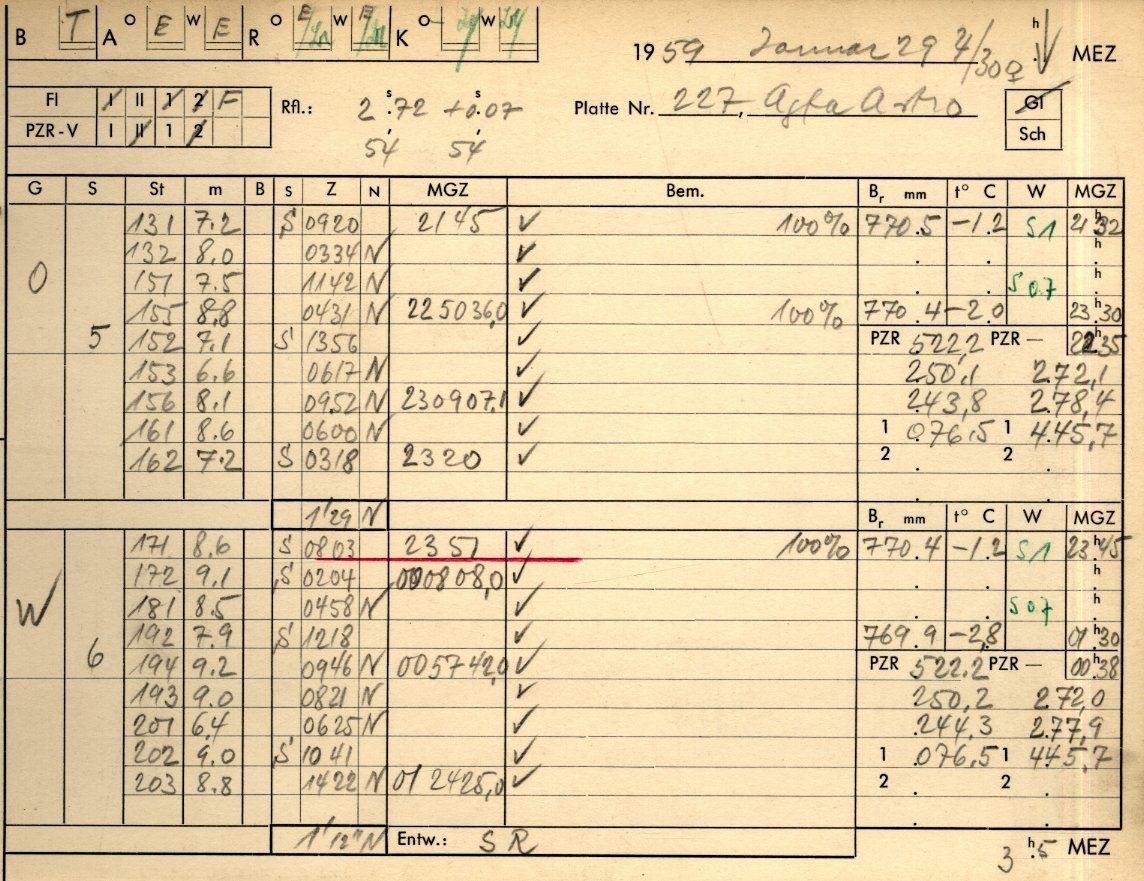 B T A O E W E R O E W E K O W
1959 Januar 29 2/30 h MEZ
Fl I II 1 2 F
PZR-V I II 1 2
Rfl.: 2 s.72 +0 s.07
54 54
Platte Nr. 227, Agfa Astro
Gl
Sch
G S St m B S Z N MGZ Bem. Br mm t° C W MGZ
O 5
131 7.2 S 0920 2145 ✓ 100% 770.5 -1.2 S1 21h32
132 8.0 0334 N ✓
151 7.5 1142 N ✓ S07
155 8.8 0431 N 225036,0 ✓ 100% 770.4 -2.0 23h30
152 7.1 S 1356 ✓ PZR 522,2 PZR — 22h35
153 6.6 0617 N ✓ 250,1 272,1
156 8.1 0952 N 230907,1 ✓ 243,8 278,4
161 8.6 0600 N ✓ 1 076,5 1 445,7
162 7.2 S 0318 2320 ✓ 2 2
1'29 N
Br mm t° C W MGZ
W 6
171 8.6 S 0803 2351 ✓ 100% 770.4 -1.2 S1 23h45
172 9.1 S 0204 000808,0 ✓
181 8.5 0458 N ✓ S07
192 7.9 S 1218 ✓ 769.9 -2,8 01h30
194 9.2 0946 N 005742,0 ✓ PZR 522.2 PZR — 00h38
193 9.0 0821 N ✓ 250,2 272,0
201 6,4 0625 N ✓ 244,3 277,9
202 9.0 S 1041 ✓ 1 076,5 1 445,7
203 8.8 1422 N 012425,0 ✓ 2 2
1'12" N Entw.: SR
3 h.5 MEZ